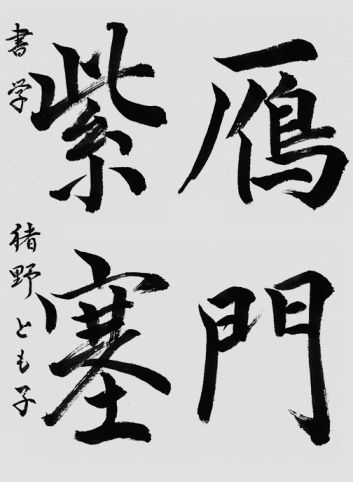 鴈門
紫塞
書学 猪野とも子